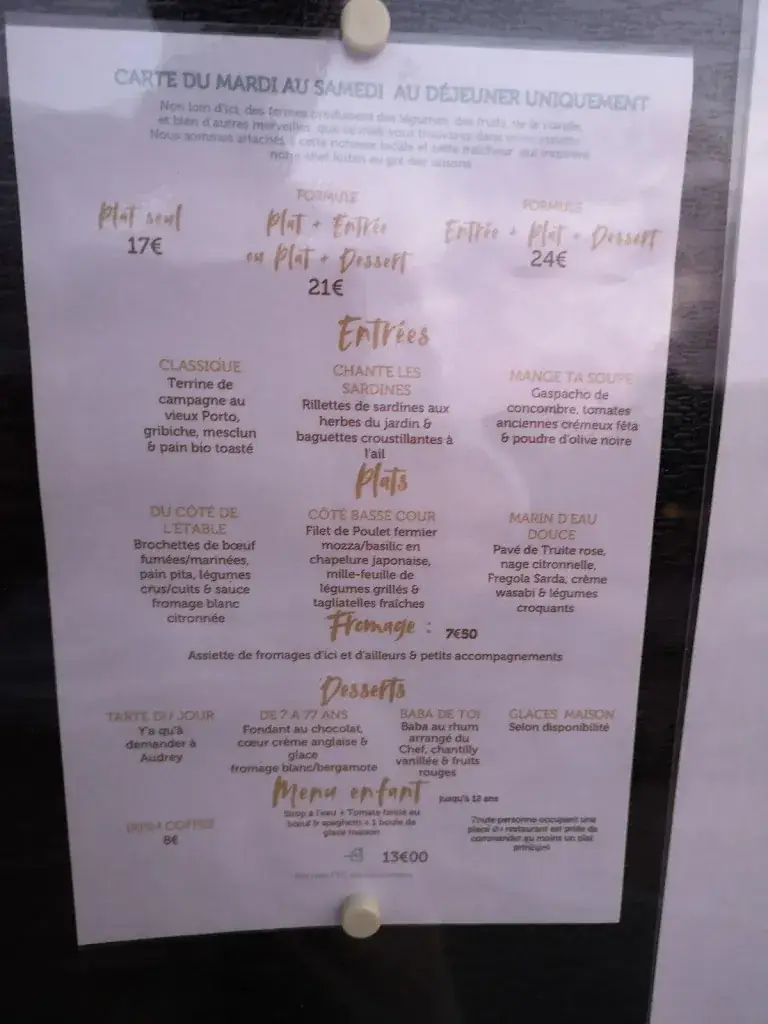 CARTE DU MARDI AU SAMEDI AU DÉJEUNER UNIQUEMENT
Non loin d'ici, des fermes produisent des légumes, des fruits, de la viande,
et bien d'autres merveilles que vous
Nous sommes attachés à cette richesse locale et cette fraîcheur qui inspirent
notre chef au gré des saisons
Plat seul
17€
FORMULE
Plat + Entrée
ou Plat + Dessert
21€
FORMULE
Entrée + Plat + Dessert
24€
Entrées
CLASSIQUE
Terrine de
campagne au
vieux Porto,
gribiche, mesclun
& pain bio toasté
CHANTE LES
SARDINES
Rillettes de sardines aux
herbes du jardin &
baguettes croustillantes à
l'ail
MANGE TA SOUPE
Gaspacho de
concombre, tomates
anciennes crémeux fêta
& poudre d'olive noire
Plats
DU CÔTÉ DE
L'ÉTABLE
Brochettes de bœuf
fumées/marinées,
pain pita, légumes
crus/cuits & sauce
fromage blanc
citronnée
CÔTÉ BASSE COUR
Filet de Poulet fermier
mozza/basilic en
chapelure japonaise,
mille-feuille de
légumes grillés &
tagliatelles fraîches
MARIN D'EAU
DOUCE
Pavé de Truite rose,
nage citronnelle,
Fregola Sarda, crème
wasabi & légumes
croquants
Fromage : 7€50
Assiette de fromages d'ici et d'ailleurs & petits accompagnements
Desserts
TARTE DU JOUR
Y'a qu'à
demander à
Audrey
DE 7 A 77 ANS
Fondant au chocolat,
cœur crème anglaise &
glace
fromage blanc/bergamote
BABA DE TOI
Baba au rhum
arrangé du
Chef, chantilly
vanillée & fruits
rouges
GLACES MAISON
Selon disponibilité
Menu enfant jusqu'à 12 ans
Sirop à l'eau + Tomate farcie au
bœuf & spaghetti + 1 boule de
glace maison
13€00
IRISH COFFEE
8€
Toute personne occupant une
place du restaurant est priée de
commander au moins un plat
principal